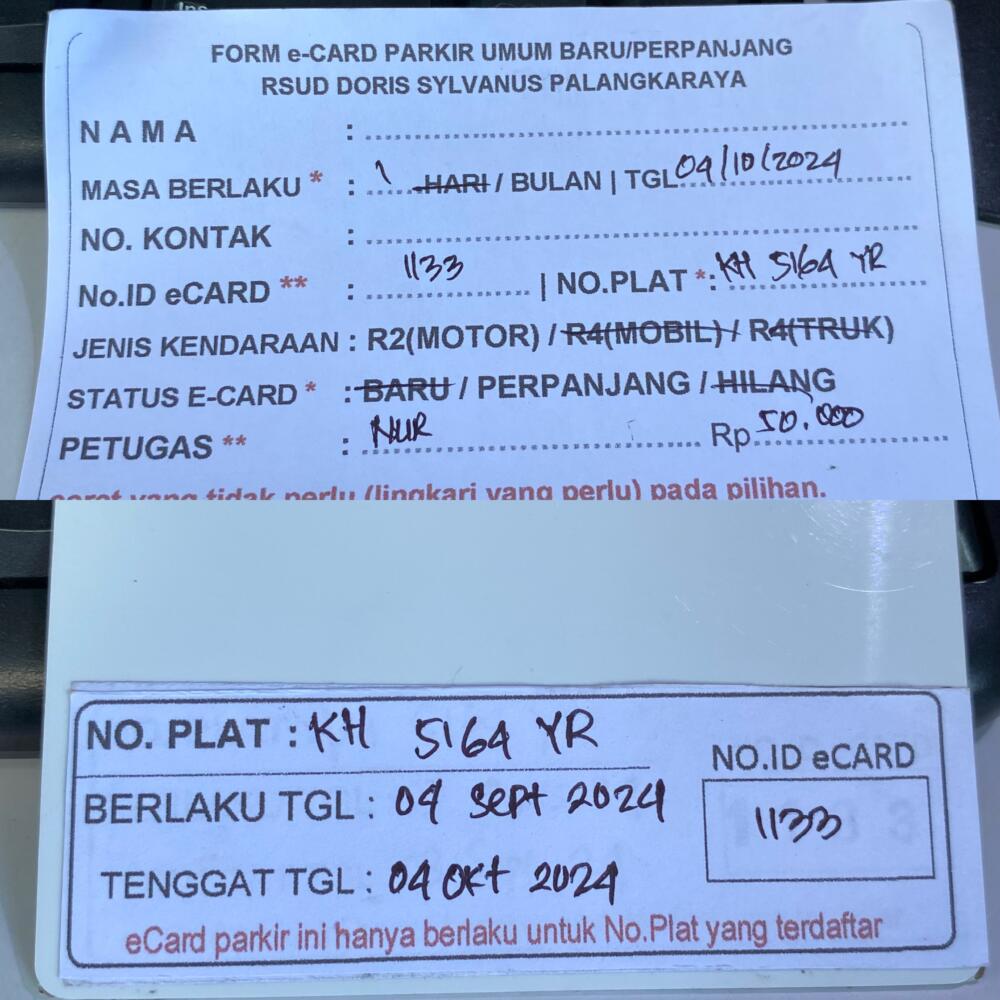 FORM e-CARD PARKIR UMUM BARU/PERPANJANG
RSUD DORIS SYLVANUS PALANGKARAYA
NAMA :
MASA BERLAKU * : 1 HARI / BULAN | TGL 04/10/2024
NO. KONTAK :
No.ID eCARD ** : 1133 | NO.PLAT *: KH 5164 YR
JENIS KENDARAAN : R2(MOTOR) / R4(MOBIL) / R4(TRUK)
STATUS E-CARD * : BARU / PERPANJANG / HILANG
PETUGAS ** : NUR Rp 50.000
coret yang tidak perlu (lingkari yang perlu) pada pilihan.
NO. PLAT : KH 5164 YR
NO.ID eCARD
BERLAKU TGL : 04 Sept 2024
1133
TENGGAT TGL : 04 Okt 2024
eCard parkir ini hanya berlaku untuk No.Plat yang terdaftar